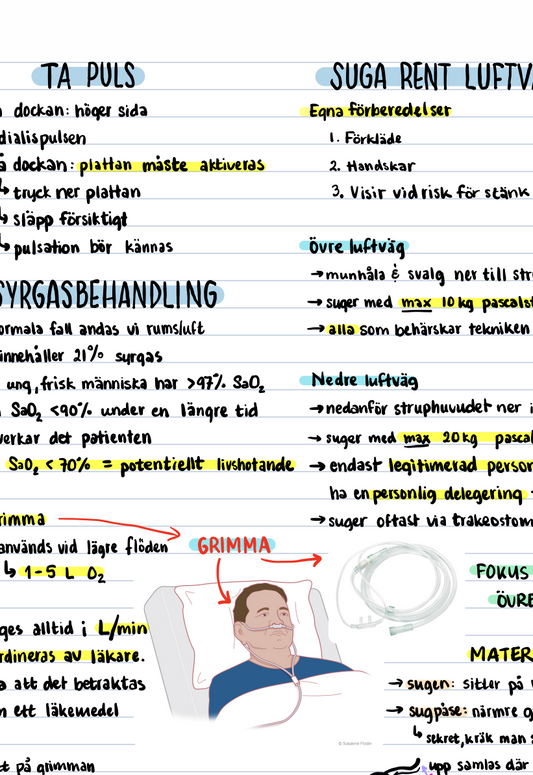 TA PULS
dockan: höger sida
dialispulsen
dockan: plattan måste aktiveras
↳ tryck ner plattan
↳ släpp försiktigt
↳ pulsation bör kännas
SYRGASBEHANDLING
ormala fall andas vi rumsluft
innehåller 21% syrgas
ung, frisk människa har >97% SaO₂
SaO₂ <90% under en längre tid
verkar det patienten
SaO₂ < 70% = potentiellt livshotande
rimma
används vid lägre flöden
↳ 1-5 L O₂
ges alltid i L/min
rdineras av läkare.
att det betraktas
ett läkemedel
tt på grimman
GRIMMA
© Susanne Flodin
SUGA RENT LUFTVÄ
Egna förberedelser
1. Förkläde
2. Handskar
3. Visir vid risk för stänk
Övre luftväg
→ munhåla & svalg ner till str
→ suger med max 10 kg pascalst
→ alla som behärskar tekniken
Nedre luftväg
→ nedanför struphuvudet ner i
→ suger med max 20 kg pascal
→ endast legitimerad person
ha en personlig delegering
→ suger oftast via trakeostom
FOKUS
ÖVRE
MATER
→ sugen: sitter på
→ sugpåse: närmre g
↳ sekret, kräk man s
upp samlas där